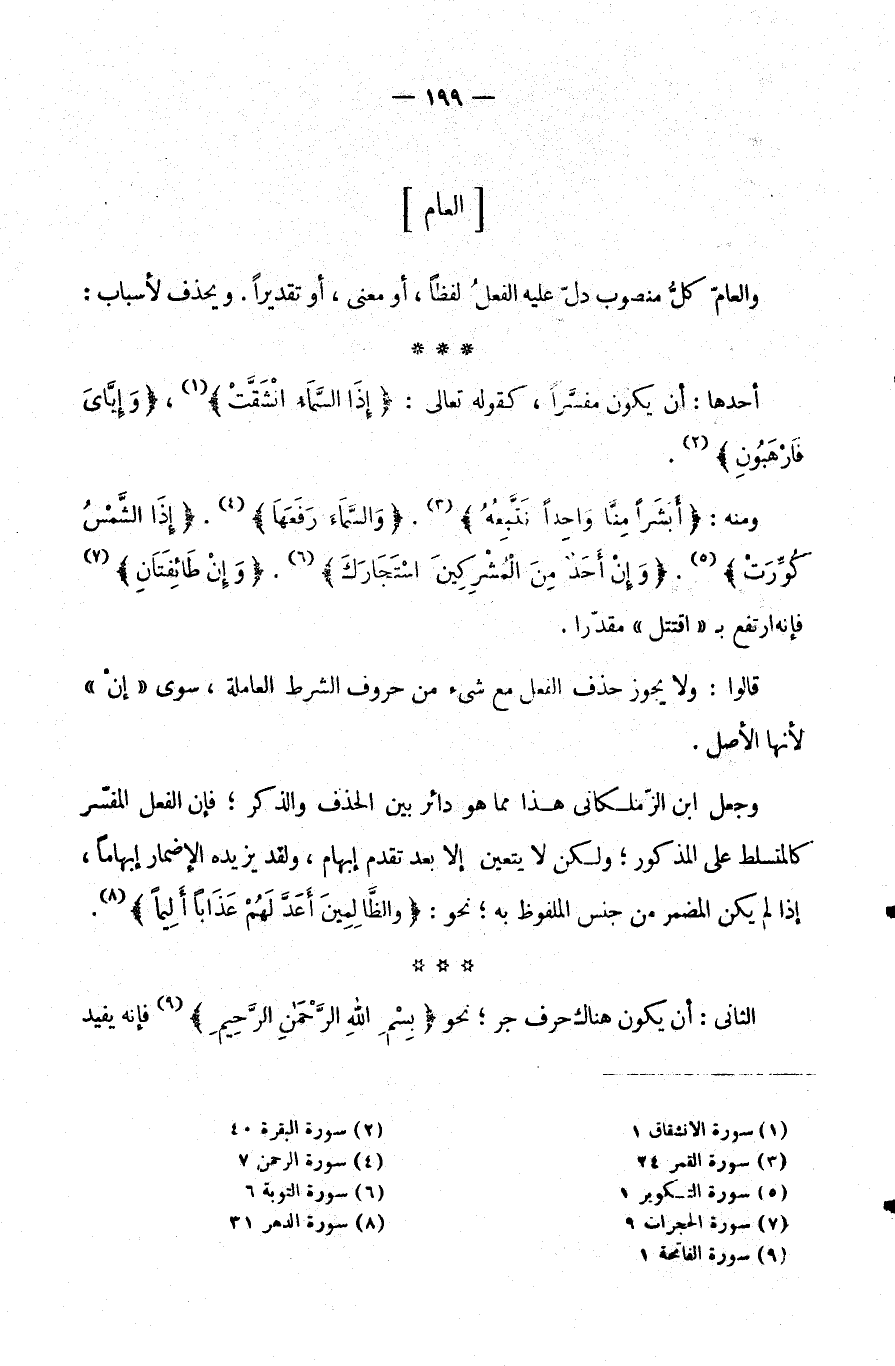 — ١٩٩ —
[ العام ]
والعامّ كلُّ منصوب دلّ عليه الفعلُ لفظاً ، أو معنى ، أو تقديراً . ويحذف لأسباب :
* * *
أحدها : أن يكون مفسَّراً ، كقوله تعالى : ﴿ إِذَا السَّمَاءُ انْشَقَّتْ ﴾(١) ، ﴿ وَإِيَّاىَ
فَارْهَبُونِ ﴾ (٢) .
ومنه : ﴿ أَبَشَراً مِنَّا وَاحِداً نَتَّبِعُهُ ﴾ (٣) . ﴿ وَالسَّمَاءَ رَفَعَهَا ﴾ (٤) . ﴿ إِذَا الشَّمْسُ
كُوِّرَتْ ﴾ (٥) . ﴿ وَإِنْ أَحَدٌ مِنَ الْمُشْرِكِينَ اسْتَجَارَكَ ﴾ (٦) . ﴿ وَإِنْ طَائِفَتَانِ ﴾ (٧)
فإنه ارتفع بـ « اقتتل » مقدّرا .
قالوا : ولا يجوز حذف الفعل مع شىء من حروف الشرط العاملة ، سوى « إنْ »
لأنها الأصل .
وجعل ابن الزّملـكانى هـذا مما هو دائر بين الحذف والذكر ؛ فإن الفعل المفسّر
كالمتسلط على المذكور ؛ ولـكن لا يتعين إلا بعد تقدم إبهام ، ولقد يزيده الإضمار إبهاماً ،
إذا لم يكن المضمر من جنس الملفوظ به ؛ نحو : ﴿ والظَّالِمِينَ أَعَدَّ لَهُمْ عَذَاباً أَلِيماً ﴾ (٨) .
* * *
الثانى : أن يكون هناك حرف جر ؛ نحو ﴿ بِسْمِ اللهِ الرَّحْمٰنِ الرَّحِيمِ ﴾ (٩) فإنه يفيد
(١) سورة الانشقاق ١
(٢) سورة البقرة ٤٠
(٣) سورة القمر ٢٤
(٤) سورة الرحمن ٧
(٥) سورة التـكوير ١
(٦) سورة التوبة ٦
(٧) سورة الحجرات ٩
(٨) سورة الدهر ٣١
(٩) سورة الفاتحة ١